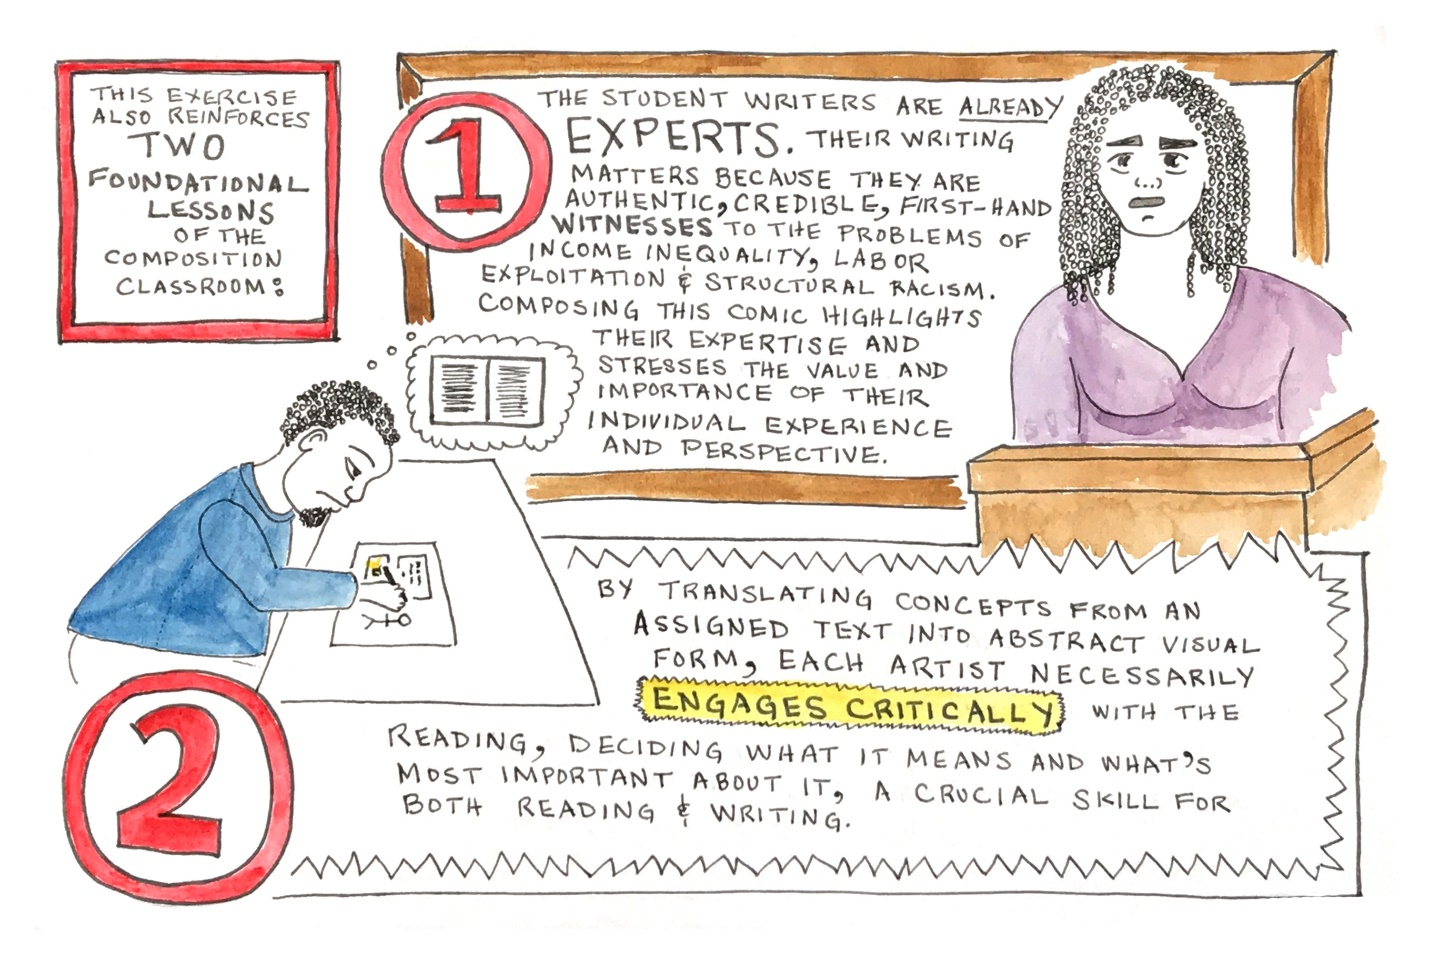 THIS EXERCISE
ALSO REINFORCES
TWO
FOUNDATIONAL
LESSONS
OF THE
COMPOSITION
CLASSROOM:
1
THE STUDENT WRITERS ARE ALREADY
EXPERTS. THEIR WRITING
MATTERS BECAUSE THEY ARE
AUTHENTIC, CREDIBLE, FIRST-HAND
WITNESSES TO THE PROBLEMS OF
INCOME INEQUALITY, LABOR
EXPLOITATION & STRUCTURAL RACISM.
COMPOSING THIS COMIC HIGHLIGHTS
THEIR EXPERTISE AND
STRESSES THE VALUE AND
IMPORTANCE OF THEIR
INDIVIDUAL EXPERIENCE
AND PERSPECTIVE.
2
BY TRANSLATING CONCEPTS FROM AN
ASSIGNED TEXT INTO ABSTRACT VISUAL
FORM, EACH ARTIST NECESSARILY
ENGAGES CRITICALLY WITH THE
READING, DECIDING WHAT IT MEANS AND WHAT'S
MOST IMPORTANT ABOUT IT, A CRUCIAL SKILL FOR
BOTH READING & WRITING.